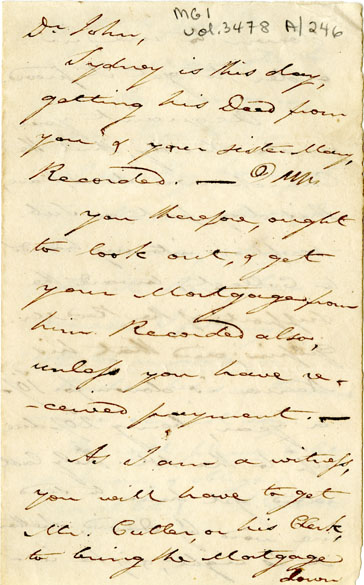 MG1
vol. 3478 A/246
Dr John,
Sydney is this day,
getting his Deed from
you & your sister May,
Recorded. —
you therefore, ought
to look out, & get
your Mortgage from
him Recorded also,
unless you have re-
-ceived payment. —
As I am a witness,
you will have to get
Mr. Cutler, or his Clerk,
to bring the Mortgage
down